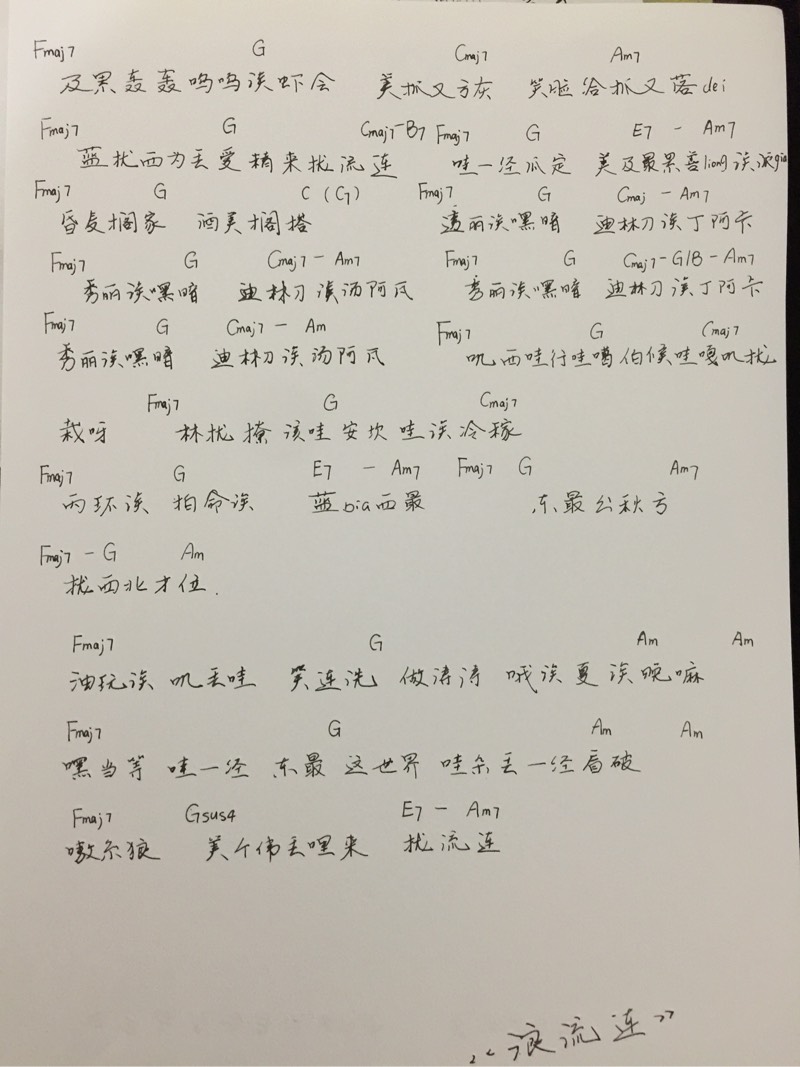 Fmaj7 G Cmaj7 Am7
及黑轰轰呜呜诶虾会 美抓又方灰 笑脸给抓又落dei
Fmaj7 G Cmaj7-B7 Fmaj7 G E7 - Am7
蓝扰西为丢爱精来扰流连 哇一经爪定 美及最黑善liong诶派gia
Fmaj7 G C (G7) Fmaj7 G Cmaj - Am7
昏友搁家 酒美搁搭 秀丽诶嘿暗 迪林刀诶丁阿卡
Fmaj7 G Cmaj7 - Am7 Fmaj7 G Cmaj7-G/B-Am7
秀丽诶嘿暗 迪林刀诶汤阿瓦 秀丽诶嘿暗 迪林刀诶丁阿卡
Fmaj7 G Cmaj7 - Am Fmaj7 G Cmaj7
秀丽诶嘿暗 迪林刀诶汤阿瓦 叽西哇行哇噜伯候哇嘎叽扰
Fmaj7 G Cmaj7
栽呀 林扰撩该哇安坎哇诶冷稼
Fmaj7 G E7 - Am7 Fmaj7 G Am7
丙环诶 拍命诶 蓝bia西最 东最公秋方
Fmaj7 - G Am
扰西北才位.
Fmaj7 G Am Am
油玩诶 叽丢哇 笑连洗 做涛涛 哦诶夏诶晚嘛
Fmaj7 G Am Am
嘿当等 哇一经 东最 这世界 哇杀丢一经看破
Fmaj7 Gsus4 E7 - Am7
嗷尔狼 美个伟丢哩来 扰流连
“浪流连”